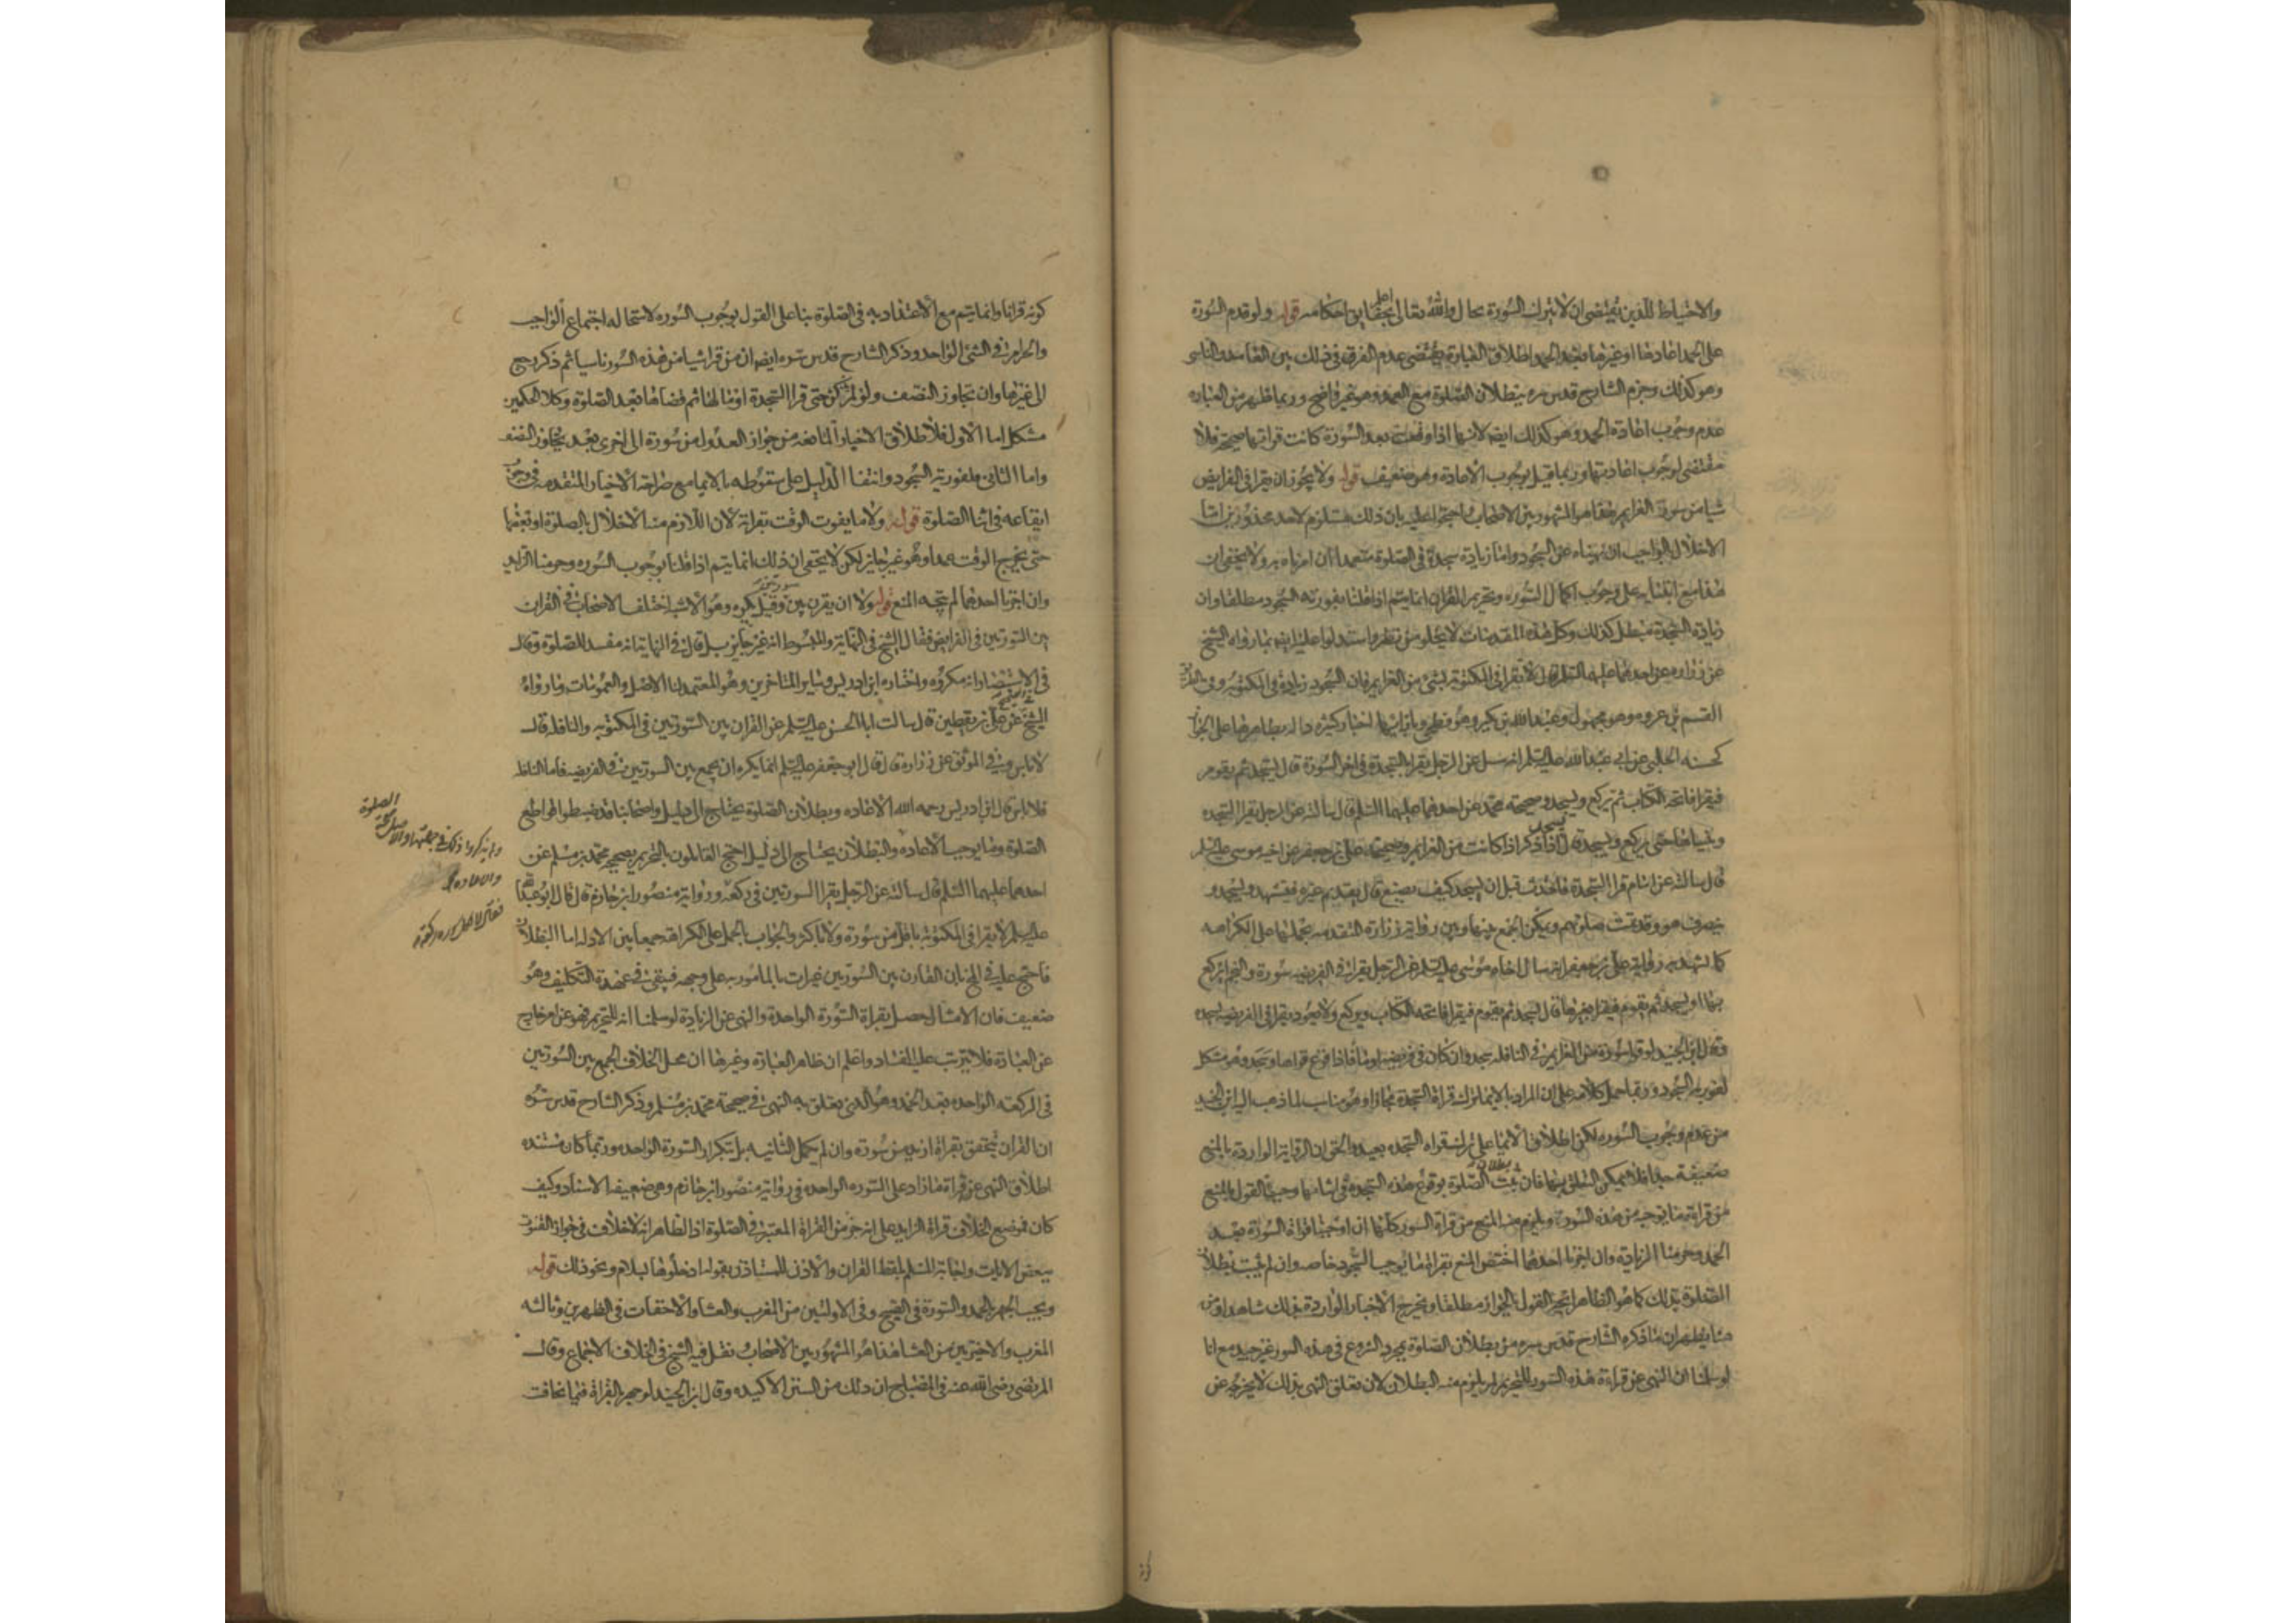 والاحتياط للدين يقتضى ان لا يترك السورة بحال والله تعالى اعلم بحقايق احكامه قوله ولو قدم السورة
على الحمد اعادها او غيرها بعد الحمد اطلاق العبارة يقتضى عدم الفرق فى ذلك بين العامد والناسى
وهو كذلك وجزم الشارح قدس سره ببطلان الصلوة مع العمد وهو غير واضح وربما ظهر من العباره
عدم وجوب اعادة الحمد وهو كذلك ايضا لانها اذا وقعت بعد السورة كانت قراتها صحيحة فلا
مقتضى لوجوب اعادتها وربما قيل بوجوب الاعادة وهو ضعيف قوله ولا يجوز ان يقرا فى الفرايض
شيا من سور العزايم هذا هو المشهور بين الاصحاب واحتجوا عليه بان ذلك مستلزم لاحد محذورين اما
الاخلال بالواجب ان نهيناه عن السجود واما زيادة سجدة فى الصلوة متعمدا ان امرناه به ولا يخفى ان
هذا مع ابتنايه على وجوب اكمال السوره وتحريم القران انما يتم اذا قلنا بفورية السجود مطلقا وان
زيادة السجدة مبطل كذلك وكل هذه المقدمات لا يخلو من نظر واستدلوا عليه ايضا بما رواه الشيخ
عن زراره عن احدهما عليهما السلام قال لا يقرا فى المكتوبة بشئ من العزايم فان السجود زيادة فى المكتوبة وفى الطريق
القسم بن عروه وهو مجهول وعبد الله بن بكير وهو فطحى وبازايهما اخبار كثيره داله بظاهرها على الجواز
كحسنه الحلبى عن ابى عبد الله عليه السلم انه سئل عن الرجل يقرا بالسجدة فى اخر السورة قال يسجد ثم يقوم
فيقرا فاتحة الكتاب ثم يركع ويسجد وصحيحة محمد عن احدهما عليهما السلم قال سالته عن الرجل يقرا السجده
وينساها حتى يركع ويسجد قال يسجد اذا ذكر اذا كانت من العزايم وصحيحة على بن جعفر عن اخيه موسى عليه السلم
قال سالته عن امام قرا السجدة فاحدث قبل ان يسجد كيف يصنع قال يقدم غيره فيتشهد ويسجد و
ينصرف هو وقد تمت صلوتهم ويمكن الجمع بينها وبين رواية زرارة المتقدمه بحملها على الكراهه
كما يشهد به رواية على بن جعفر انه سال اخاه موسى عليه السلم عن الرجل يقرا فى الفريضه سورة والنجم ايركع
بها او يسجد ثم يقوم فيقرا بغيرها قال يسجد ثم يقوم فيقرا فاتحة الكتاب ويركع ولا يعود يقرا فى الفريضه بسجده
وقال ابن الجنيد لو قرا سورة من العزايم فى النافله سجد وان كان فى فريضه اوما فاذا فرغ قراها وسجد وهو مشكل
لفورية السجود وربما حمل كلامه على ان المراد بالايما ترك قراة السجدة مجازا وهو مناسب لما ذهب اليه ابن الجنيد
من عدم وجوب السوره لكن اطلاق الايما على ترك قراة السجده بعيد والحق ان الرواية الواردة بالمنع
ضعيفة جدا فلا يمكن التعلق بها فان ثبت بطلان الصلوة بوقوع هذه السجدة فى اثنائها وجب القول بالمنع
من قراءة ما يوجبه من هذه السور ويلزم منه المنع من قراة السور كلها ان اوجبنا قراة السورة بعد
الحمد وحرمنا الزيادة وان اجزنا احدهما اختص المنع بقراة ما يوجب السجود خاصه وان لم يثبت بطلان
الصلوة بذلك كما هو الظاهر اتجه القول بالجواز مطلقا وتخرج الاخبار الواردة بذلك شاهدا ومن
هنا يظهر ان ما ذكره الشارح قدس سره من بطلان الصلوة بمجرد الشروع فى هذه السور غير جيد مع انا
لو سلمنا ان النهى عن قراءة هذه السور للتحريم لم يلزم منه البطلان لان تعلق النهى بذلك لا يخرجه عن
كونه
كونه قرانا وانما يتم مع الاعتداد به فى الصلوة بناء على القول بوجوب السوره لاستحاله اجتماع الواجب
والحرام فى الشئ الواحد وذكر الشارح قدس سره ايضا ان من قرا شيا من هذه السور ناسيا ثم ذكر رجع
الى غيرها وان تجاوز النصف ولو لم يذكر حتى قرا السجدة اومأ لها ثم قضاها بعد الصلوة وكلا الحكمين
مشكل اما الاول فلاطلاق الاخبار المانعه من جواز العدول من سورة الى اخرى بعد تجاوز النصف
واما الثانى فلفورية السجود وانتفا الدليل على سقوطه بالايما مع صراحة الاخبار المتقدمه فى وجوب
ايقاعه فى اثنا الصلوة قوله ولا ما يفوت الوقت بقراته لان اللازم منه الاخلال بالصلوة او بعضها
حتى يخرج الوقت عمدا وهو غير جايز لكن لا يخفى ان ذلك انما يتم اذا قلنا بوجوب السوره وحرمنا الزايد
وان اجزنا احدهما لم يتجه المنع قوله ولا ان يقرن بين سورتين وقيل يكره وهو الاشبه اختلف الاصحاب فى القران
بين السورتين فى الفرايض فقال الشيخ فى النهاية والمبسوط انه غير جايز بل قال فى النهاية انه مفسد للصلوة وقال
فى الاستبصار انه مكروه واختاره ابن ادريس وساير المتاخرين وهو المعتمد لنا الاصل والعمومات وما رواه
الشيخ فى الصحيح عن على بن يقطين قال سالت ابا الحسن عليه السلم عن القران بين السورتين فى المكتوبه والنافله قال
لا باس وفى الموثق عن زرارة قال قال ابو جعفر عليه السلم انما يكره ان يجمع بين السورتين فى الفريضه فاما النافلة
فلا باس قال ابن ادريس رحمه الله الاعاده وبطلان الصلوة يحتاج الى دليل واصحابنا قد ضبطوا قواطع
الصلوة وما يوجب الاعادة والبطلان يحتاج الى دليل احتج القائلون بالتحريم بصحيحة محمد بن مسلم عن
احدهما عليهما السلم قال سالته عن الرجل يقرا السورتين فى ركعه ورواية منصور ابن حازم قال قال ابو عبد الله
عليه السلم لا يقرا فى المكتوبة باقل من سورة ولا باكثر والجواب بالحمل على الكراهة جمعا بين الادله اما البطلان
فاحتج عليه فى المخ بان القارن بين السورتين غير ات بالمامور به على وجهه فيبقى فى عهدة التكليف وهو
ضعيف فان الامتثال حصل بقراة السورة الواحدة والنهى عن الزيادة لو سلمنا انه للتحريم فهو عن امر خارج
عن العبادة فلا يترتب عليه الفساد واعلم ان ظاهر العبارة وغيرها ان محل الخلاف الجمع بين السورتين
فى الركعة الواحده بعد الحمد وهو الذى يتعلق به النهى فى صحيحة محمد بن مسلم وذكر الشارح قدس سره
ان القران يتحقق بقراة ازيد من سورة وان لم يكمل الثانيه بل بتكرار السورة الواحده وربما كان مستنده
اطلاق النهى عن قراة ما زاد على السوره الواحده فى رواية منصور ابن حازم وهى ضعيفة الاسناد وكيف
كان فموضع الخلاف قراة الزايد على انه جزء من القراة المعتبرة فى الصلوة اذ الظاهر انه لا خلاف فى جواز القنوت
ببعض الايات واجابة المسلم بلفظ القران والاذن للمستاذن بقوله ادخلوها بسلام ونحو ذلك قوله
ويجب الجهر بالحمد والسورة فى الصبح وفى الاوليين من المغرب والعشا والاخفات فى الظهرين وثالثه
المغرب والاخيرتين من العشا هذا هو المشهور بين الاصحاب ونقل فيه الشيخ فى الخلاف الاجماع وقال
المرتضى رضى الله عنه فى المصباح ان ذلك من السنن الاكيده وقال ابن الجنيد لو جهر بالقراة فيما يخافت